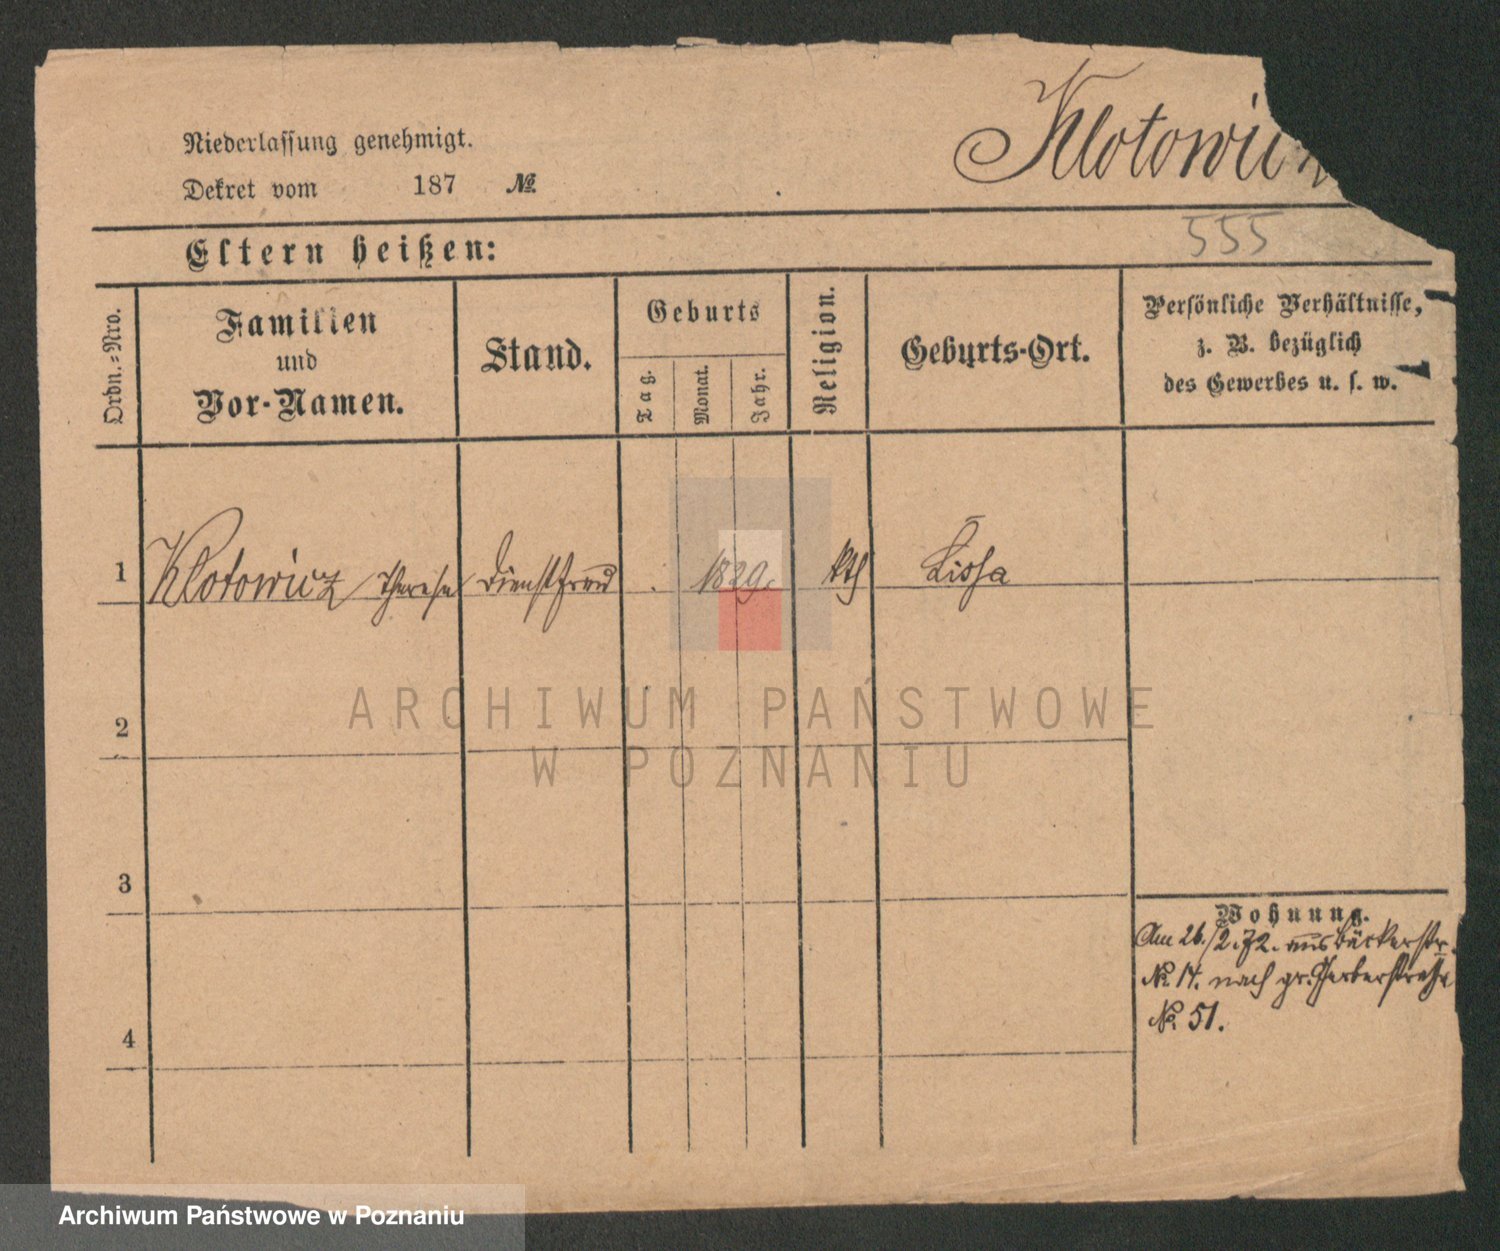 Niederlassung genehmigt.
Dekret vom 187 №
Klotowicz
555
Eltern heißen:
Ordn.=Nro.
Familien
und
Vor-Namen.
Stand.
Geburts
Tag.
Monat.
Jahr.
Religion.
Geburts-Ort.
Persönliche Verhältnisse,
z. B. bezüglich
des Gewerbes u. s. w.
1 Klotowicz Therese 1829. kth Lissa
ARCHIWUM PAŃSTWOWE
W POZNANIU
2
3
4
Wohnung.
Am 26./2. 72. aus Bäckerstr.
№ 14. nach gr. Gerberstraße
№ 51.
Archiwum Państwowe w Poznaniu